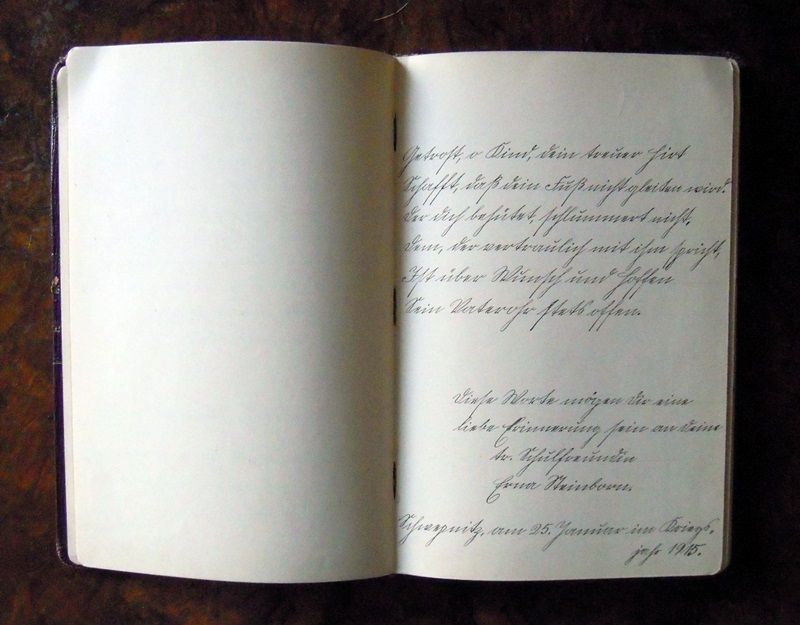 Getrost, o Kind, dein treuer Hirt
Schafft, daß dein Fuß nicht gleiten wird.
Der dich behütet, schlummert nicht,
Dem, der vertraulich mit ihm spricht,
Ist über Wunsch und Hoffen
Sein Vaterohr stets offen.
Diese Worte mögen dir eine
liebe Erinnerung sein an deine
tr. Schulfreundin
Erna Steinborn.
Schwepnitz, am 25. Januar im Kriegs-
jahr 1915.